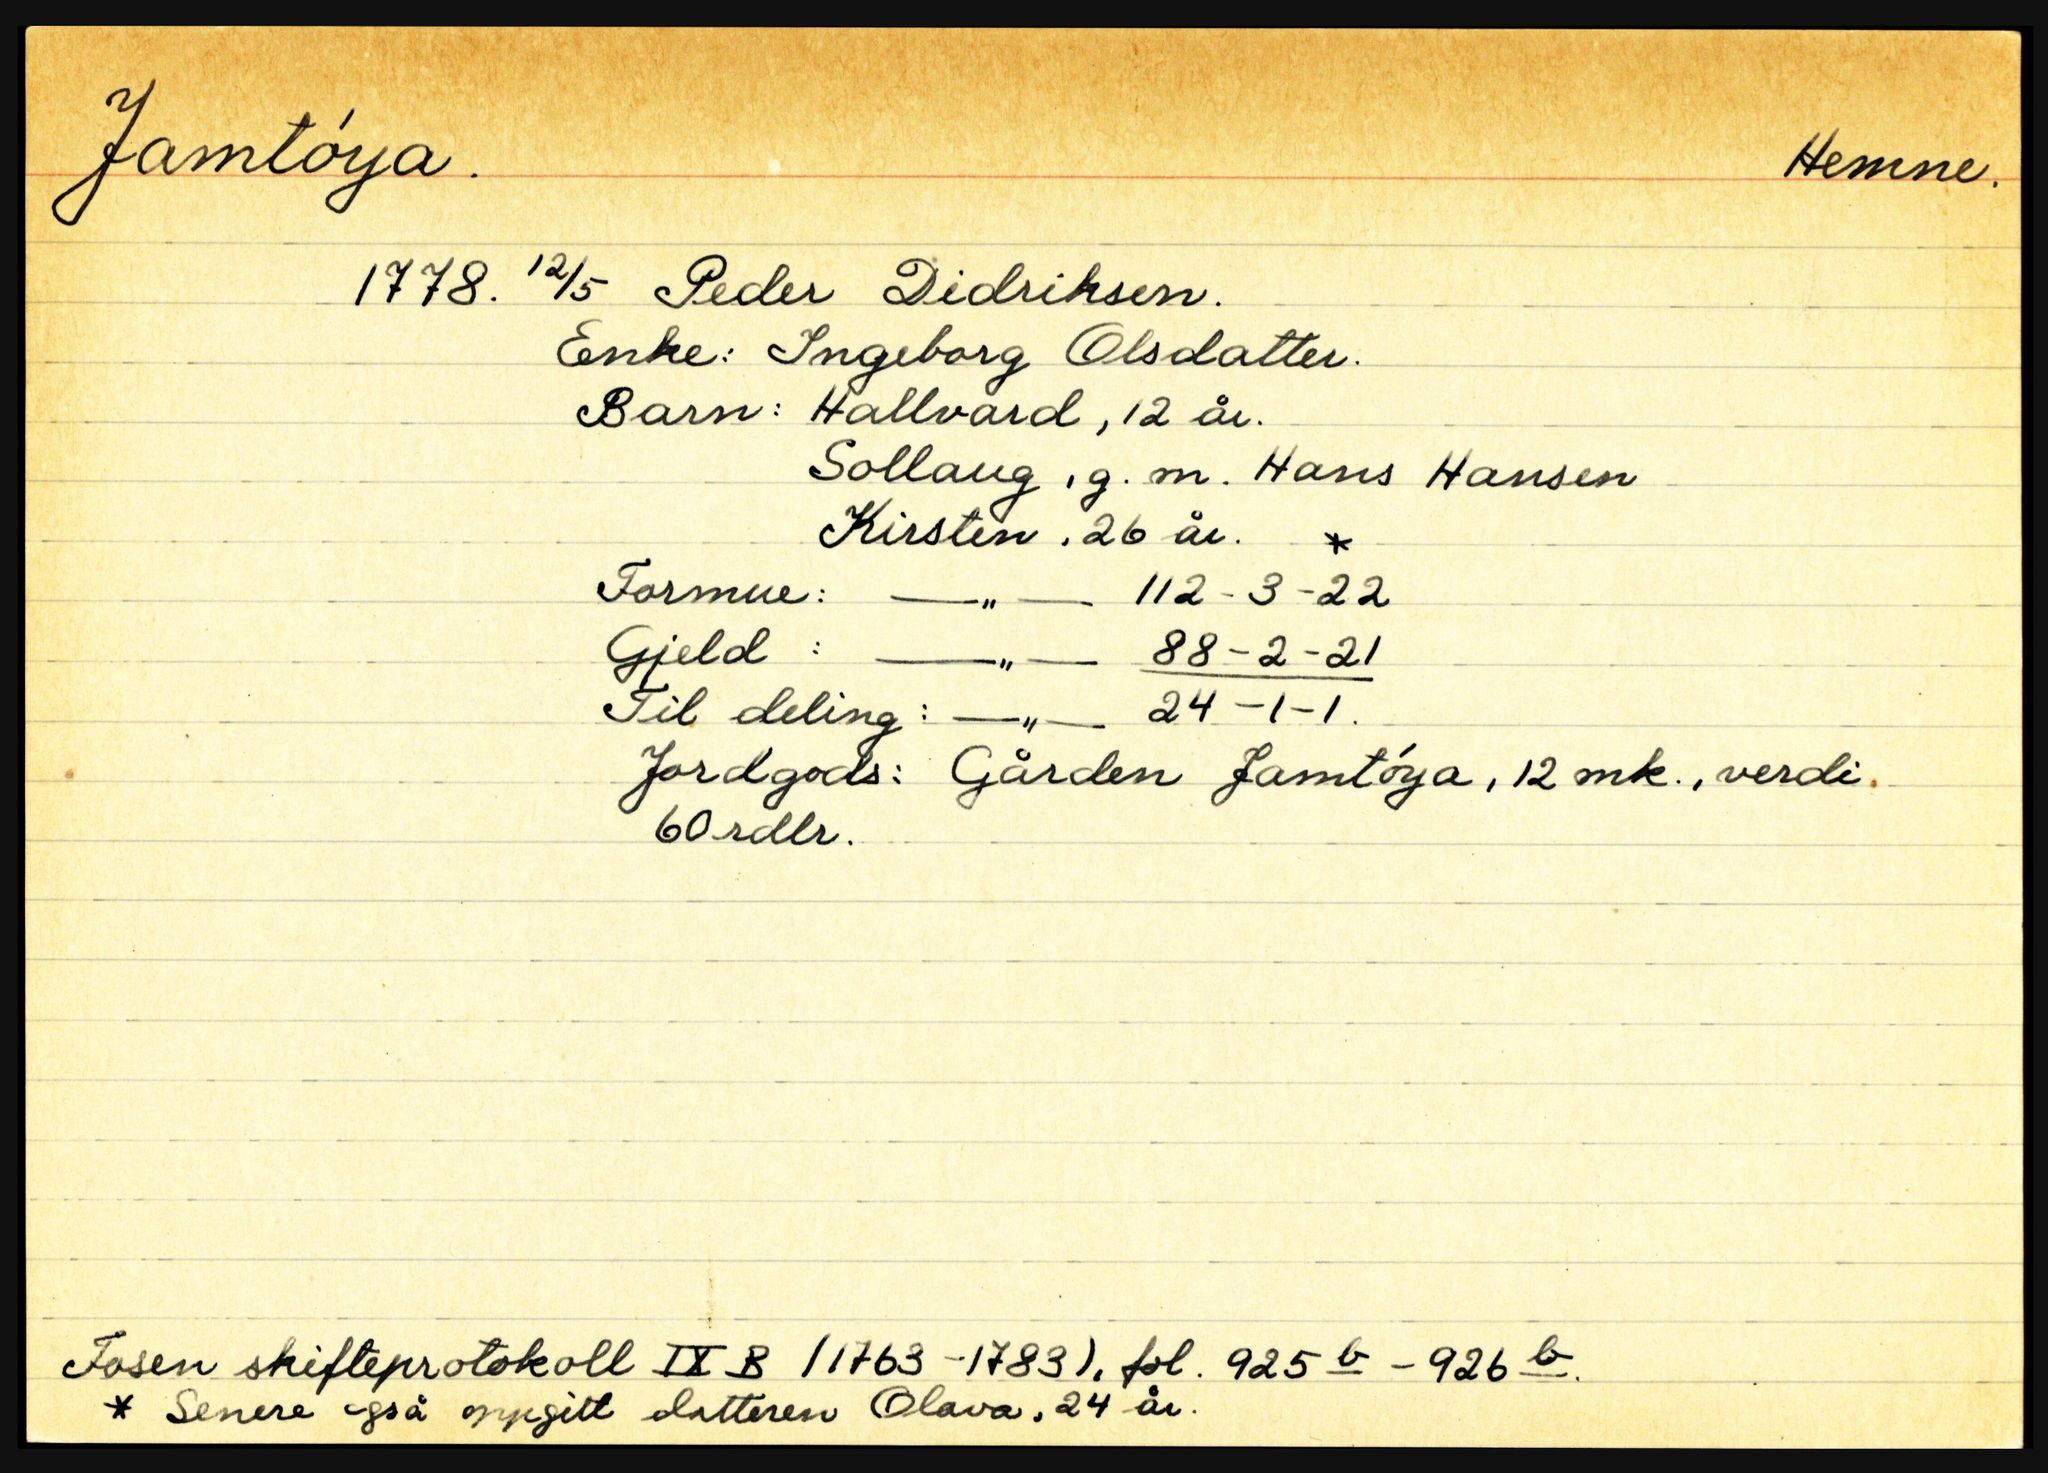 Jamtóya.
Hemne.
1778. 12/5 Peder Didriksen.
Enke: Ingeborg Olsdatter.
Barn: Hallvard, 12 år.
Sollaug, g. m. Hans Hansen
Kirsten, 26 år. *
Formue: —„— 112-3-22
Gjeld : —„— 88-2-21
Til deling: —„— 24-1-1.
Jordgods: Gården Jamtóya, 12 mk., verdi
60 rdlr.
Fosen skifteprotokoll IX B (1763-1783), fol. 925 b - 926 b.
* Senere også oppgitt datteren Olava, 24 år.